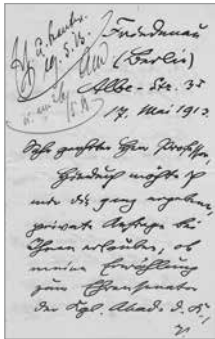 Friedenau
(Berlin)
Albe-Str. 35
17. Mai 1913.
Sehr geehrter Herr Professor,
Hierdurch möchte ich
mir die ganz ergebene,
private Anfrage bei
Ihnen erlauben, ob
meine Erwählung
zum Ehrensenator
der Kgl. Akad. d. K.